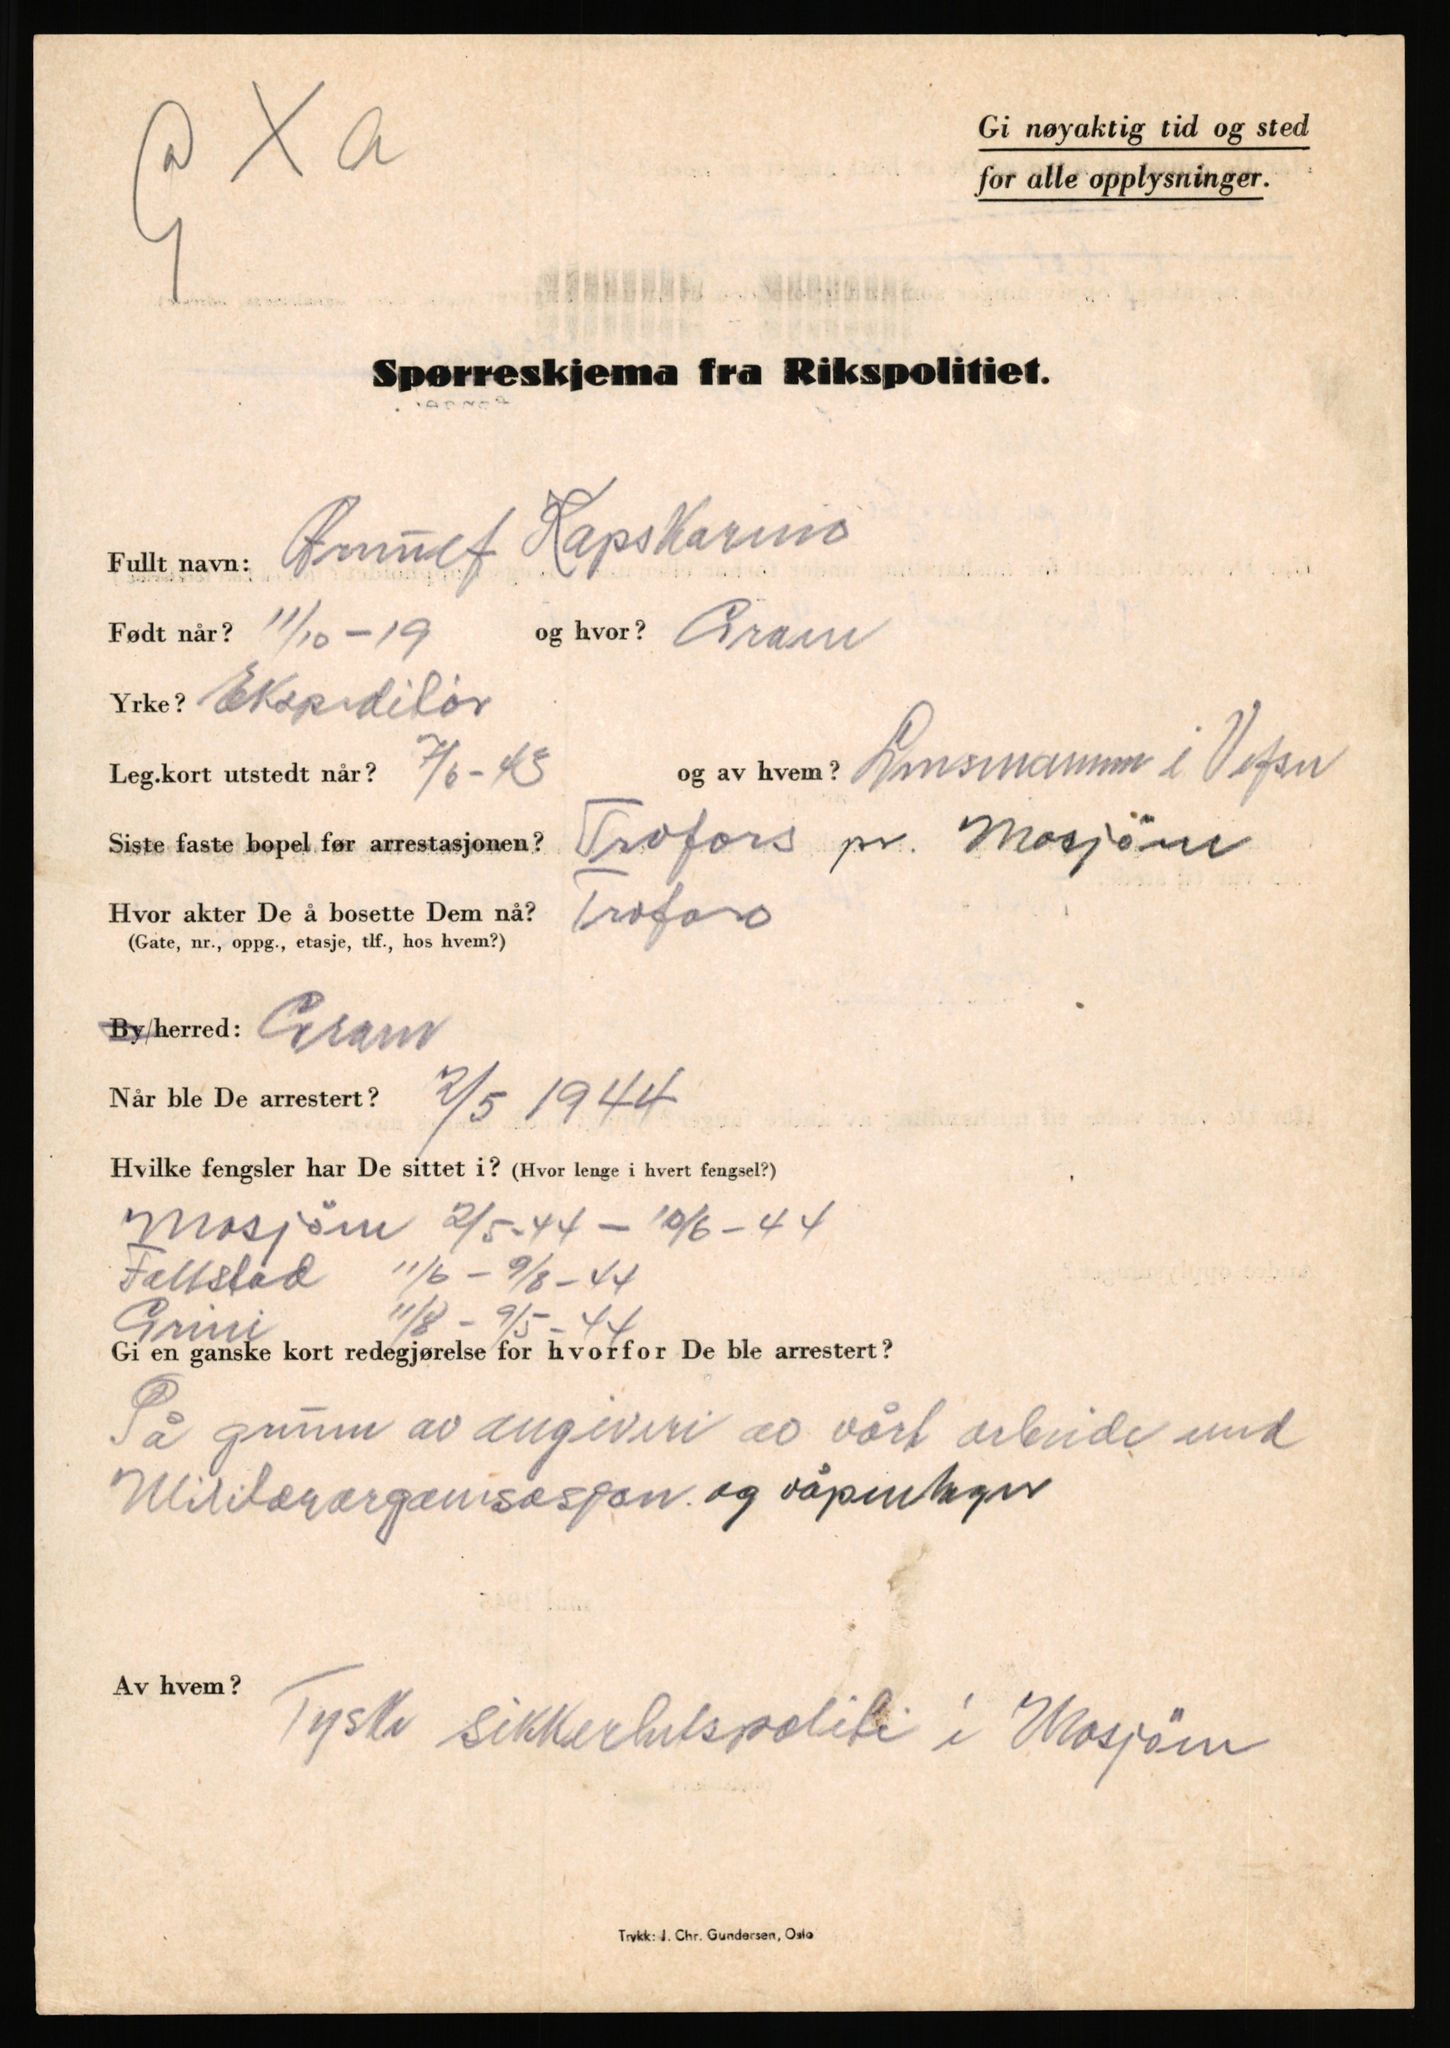 G X a
Gi nøyaktig tid og sted
for alle opplysninger.
Spørreskjema fra Rikspolitiet.
Fullt navn: Kapskarmo
Født når? 11/10-19 og hvor? Grane
Yrke? Ekspeditør
Leg.kort utstedt når? 7/6-43 og av hvem? Lensmannen i Vefsn
Siste faste bopel før arrestasjonen? Trofors pr. Mosjöen
Hvor akter De å bosette Dem nå? Trofors
(Gate, nr., oppg., etasje, tlf., hos hvem?)
By/herred: Grane
Når ble De arrestert? 2/5 1944
Hvilke fengsler har De sittet i? (Hvor lenge i hvert fengsel?)
Mosjöen 2/5-44 - 10/6-44
Falstad 11/6 - 9/8-44
Grini 11/8 - 9/5-44
Gi en ganske kort redegjørelse for hvorfor De ble arrestert?
På grunn av angiveri av vårt arbeide med
Militærorganisasjon. og våpenlager
Av hvem? Tyske sikkerhetspoliti i Mosjöen
Trykk: J. Chr. Gundersen, Oslo